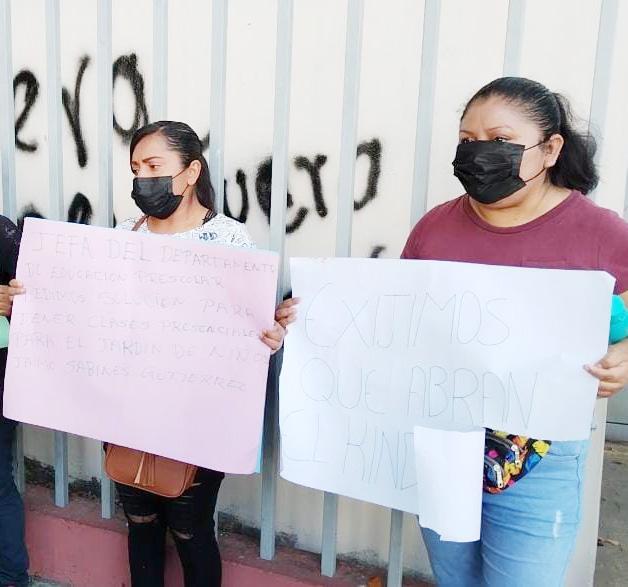 era
uero
JEFA DEL DEPARTAMENTO
DE EDUCACION PRESCOLAR
PEDIMOS SOLUCION PARA
TENER CLASES PRESENCIALES
PARA EL JARDIN DE NIÑOS
JAIME SABINES GUTIERREZ
EXIJIMOS
QUE ABRAN
EL KIND